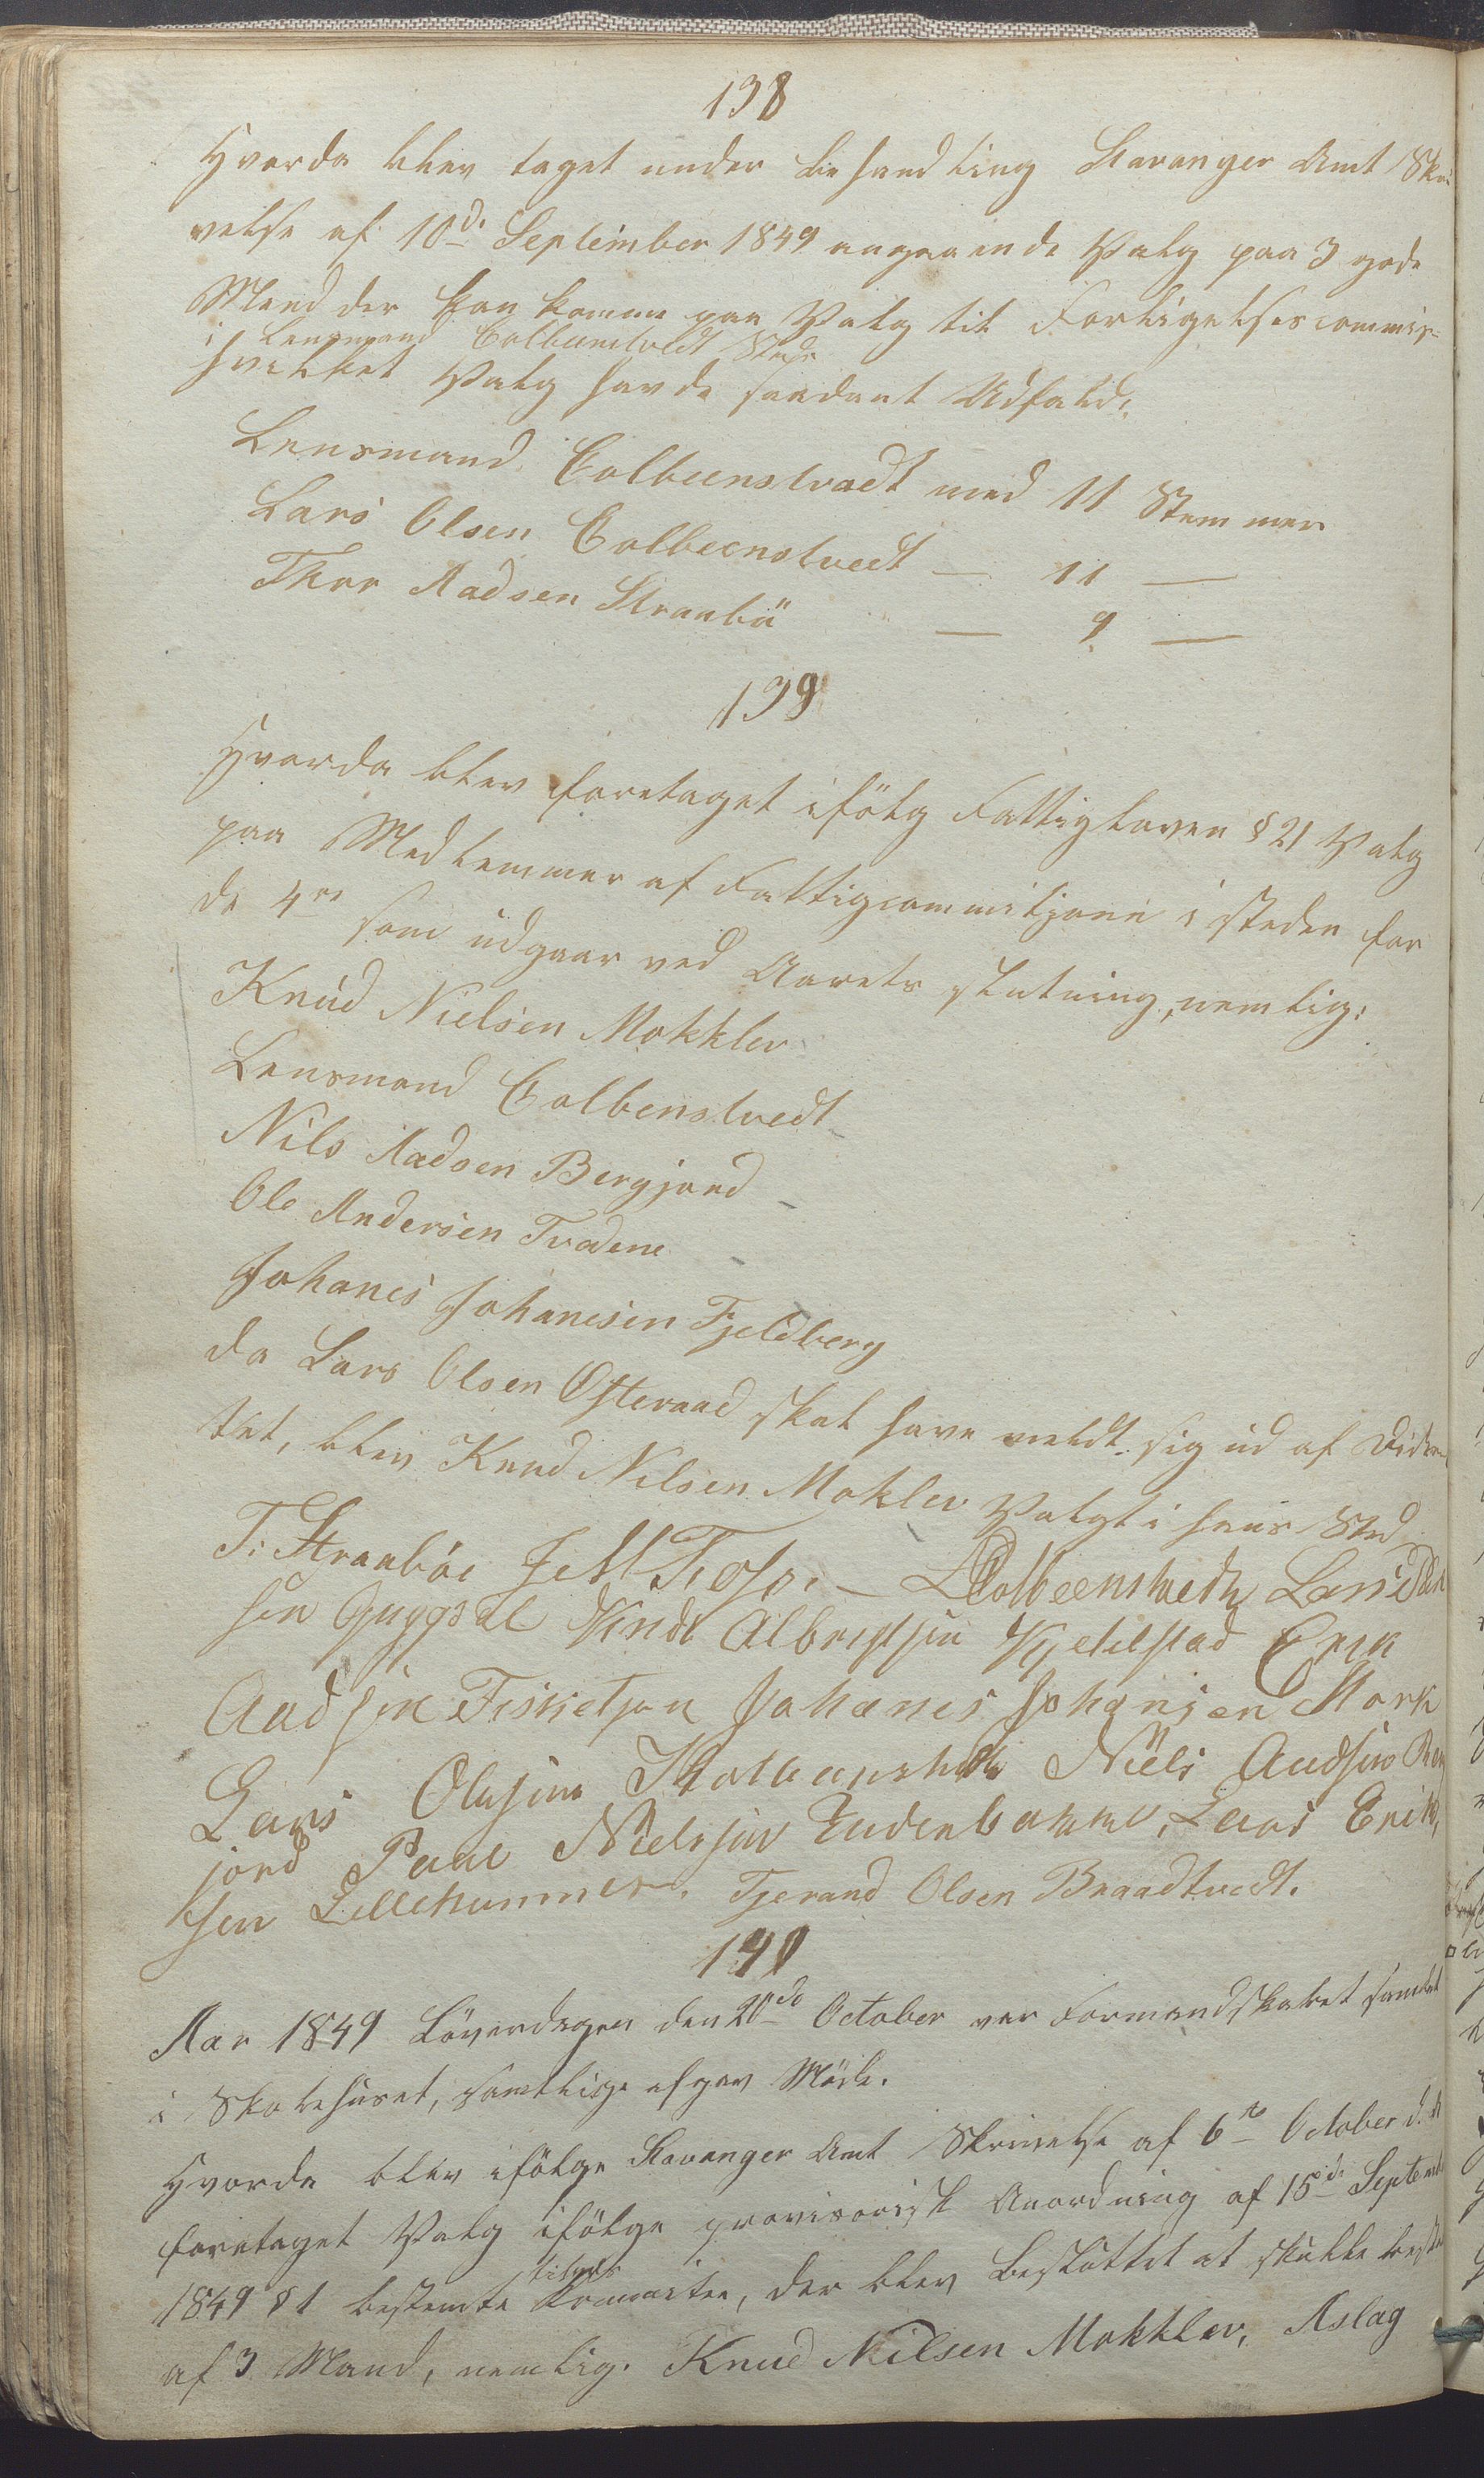 138
Hvorda blev taget under Behandling Stavanger Amt Skri
velse af 10d. September 1849 angaaende Valg paa 3 gode
Mænd der kan komme paa Valg til Forligelsescommis-
i Lensmand Colbeenstvedt Sted
hvilket Valg havde saadant Udfald:
Lensmand Colbeenstvedt med 11 Stemmer
Lars Olsen Colbeenstvedt — 11 —
Thor Aadsen Straabö — 9 —
139
Hvorda blev foretaget ifölg Fattigloven § 21 Valg
paa Medlemmer af Fattigcommisjonen i steden for
de 4re som udgaar ved Aarets slutning, nemlig:
Knud Nielsen Mokklev
Lensmand Colbenstvedt
Nils Aadsen Bergjord
Ole Andersen Tvedene
Johanes Johanesen Fjeldberg
da Lars Olsen Østeraad skal have meldt sig ud af
tet, blev Knud Nilsen Moklev Valgt i hans Sted
T. Straaböe — Colbeenstvedt Lars
sen Knud Albrigtsen Kjelelstad Erik
Aadsen Fisketjøn Johanes Johansen Mork
Lars Olasen Kolbeenstvedt Niels Aadsen Berg
jord Paul Nielsen Lars Erik,
sen Lillehammer. Tjerand Olsen Braadtvedt.
140
Aar 1849 Löverdagen den 20de October var Formandskabet samlet
i Skolehuset, samtlige afgav Möde.
Hvorda blev ifölge Stavanger Amt Skrivelse af 6te October d. A
foretaget Valg ifölge provisorisk Anordning af 15de Septemb
1849 § 1 bestemte Commitee, der blev Besluttet at skulle bestaa
af 3 Mand, nemlig. Knud Nilsen Mokklev, Aslag